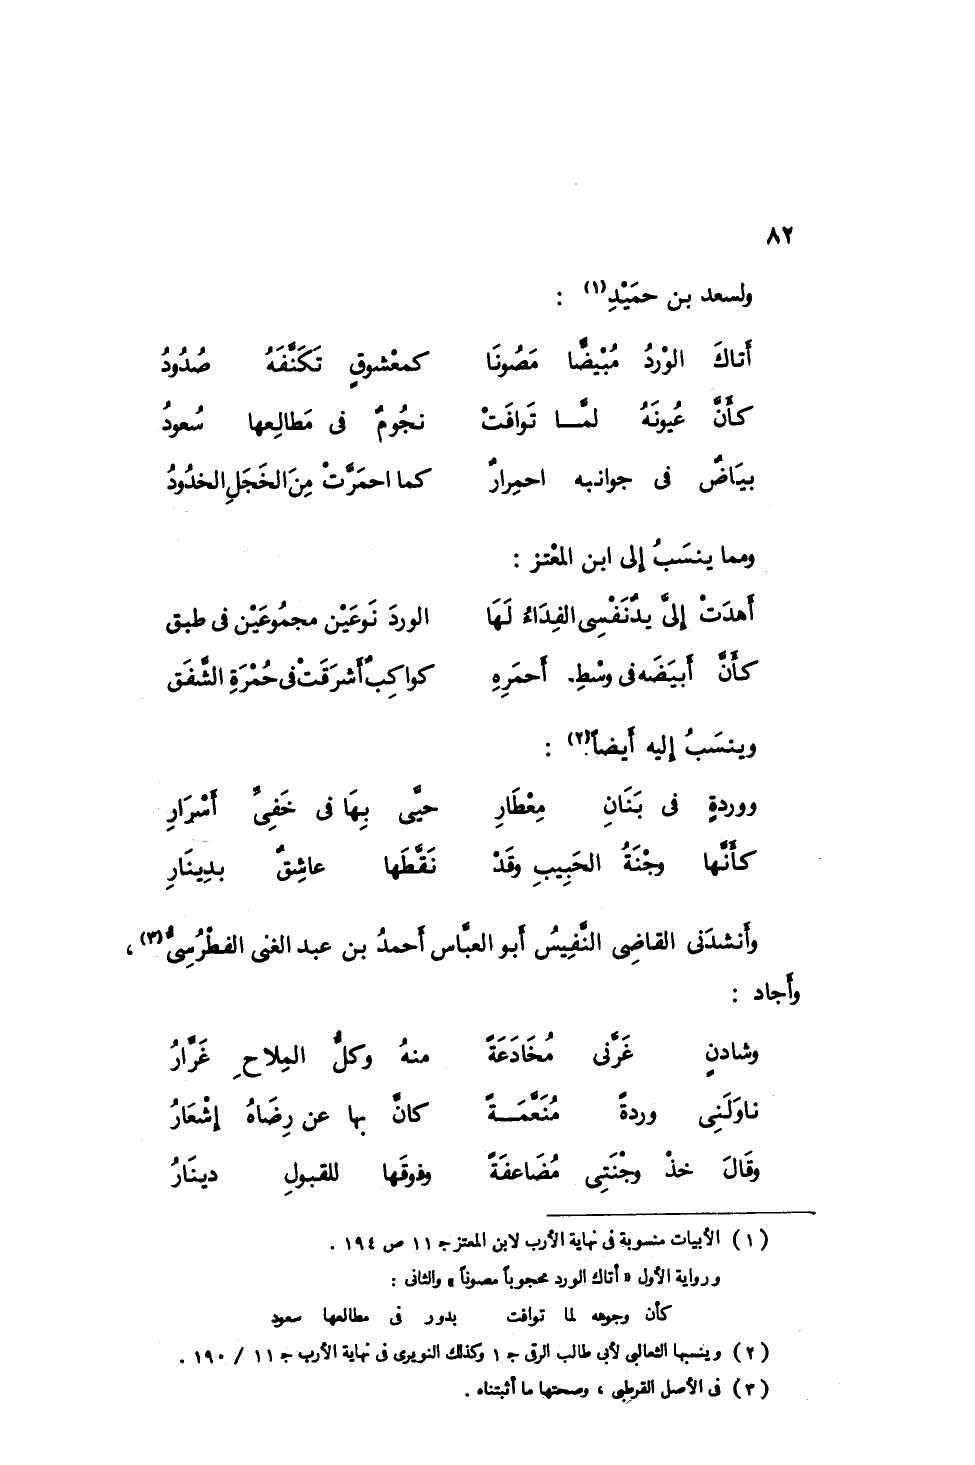 ٨٢
ولسعد بن حمَيْدِ(١) :
أَتاكَ الوْردُ مُبْيضًّا مَصُونَا كمعْشوقٍ تَكَنَّفَهُ صُدُودُ
كأَنَّ عُيونَهُ لمَّا تَوافَتْ نجُومٌ فى مَطالِعها سُعودُ
بيَاضٌ فى جوانبه احمِرارٌ كما احمَرَّتْ مِنَ الخَجَلِ الخدُودُ
ومما ينسَبُ إلى ابن المعْتز :
أَهدَتْ إلىَّ يدٌ نَفْسِى الفِدَاءُ لَهَا الوردَ نَوعَيْن مجمُوعَيْن فى طبق
كأَنَّ أَبيَضَه فى وسْطِ. أَحمَرِهِ كواكِبٌ أَشرَقَتْ فى حُمْرَةِ الشَّفَق
وينسَبُ إليه أَيضاً(٢) :
ووردةٍ فى بَنَانِ مِعْطَارِ حيَّى بِهَا فى خَفِىِّ أَسْرَارِ
كأَنَّها وجْنَةُ الحَبِيبِ وقَدْ نَقَّطَها عاشِقٌ بدِينَارِ
وأَنشدَنى القاضِى النَّفِيسُ أَبو العبَّاس أَحمدُ بن عبد الغنى الفطْرُسِىُّ(٣) ،
وأَجاد :
وشادنٍ غَرَّنى مُخَادَعَةً منهُ وكلُّ المِلاحِ غَرَّارُ
ناوَلَنِى وردةً مُنَعَّمَةً كانَّ بها عن رِضَاهُ إشْعَارُ
وقَالَ خذْ وجْنَتِى مُضَاعفَةً وفوقَها للقبولِ دينَارُ
(١) الأبيات منسوبة فى نهاية الأرب لابن المعتز جـ ١١ ص ١٩٤ .
ورواية الأول « أتاك الورد محجوباً مصوناً » والثانى :
كأن وجوهه لما توافت بدور فى مطالعها سعود
(٢) وينسبها الثعالبى لأبى طالب الرقى جـ ١ وكذلك النويرى فى نهاية الأرب جـ ١١ / ١٩٠ .
(٣) فى الأصل القرطبى ، وصحتها ما أثبتناه .